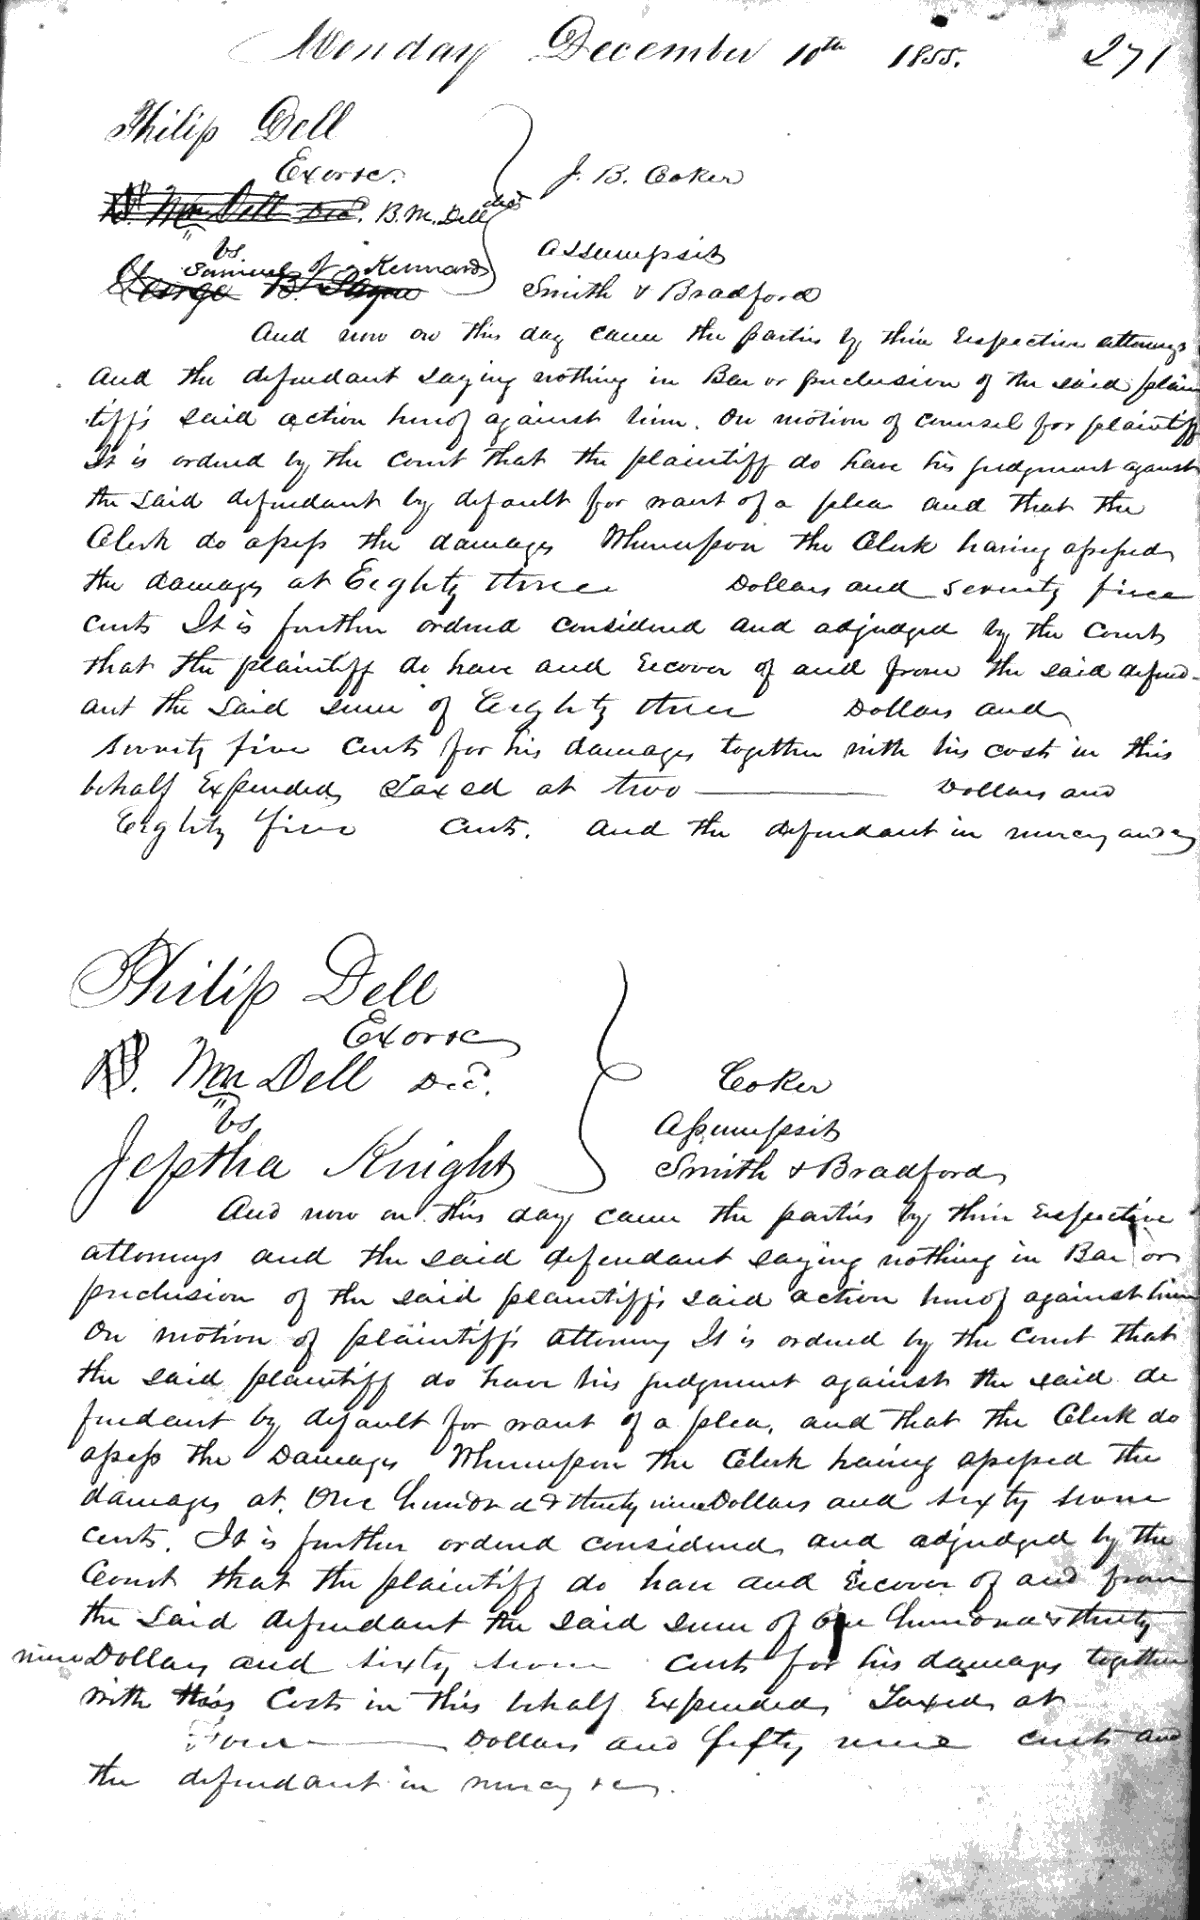 Monday December 10th 1855. 271
Philip Dell
Exor &c.
J. B. Coker
Wm Dell Dec. B. M. Dell decd
vs
Assumpsit
Samuel J. Kennard
George B.
Smith & Bradford
And now on this day came the parties by their respective attorneys
And the defendant saying nothing in Bar or preclusion of the said plain
tiff's said action hereof against him. On motion of counsel for plaintiff
It is ordered by the Court that the plaintiff do have his judgment against
the said defendant by default for want of a plea and that the
Clerk do assess the damages Whereupon the Clerk having assessed
the damages at Eighty three Dollars and seventy five
cents It is further ordered considered and adjudged by the Court
that the plaintiff do have and recover of and from the said defend-
ant the said sum of Eighty three Dollars and
seventy five cents for his damages together with his cost in this
behalf Expended Taxed at two Dollars and
Eighty five cents. And the defendant in mercy and c
Philip Dell
Exor &c
Wm Dell Dec.
Coker
vs
Assumpsit
Jeptha Knight
Smith & Bradford
And now on this day came the parties by their respective
attorneys and the said defendant saying nothing in Bar or
preclusion of the said plaintiff's said action hereof against him
On motion of plaintiff's attorney It is ordered by the Court that
the said plaintiff do have his judgment against the said de
fendant by default for want of a plea, and that the Clerk do
assess the Damages Whereupon the Clerk having assessed the
damages at One hundred & thirty nine Dollars and sixty seven
cents. It is further ordered considered and adjudged by the
Court that the plaintiff do have and recover of and from
the said defendant the said sum of One hundred & thirty
nine Dollars and sixty seven cents for his damages together
with his Costs in this behalf Expended Taxed at
Four Dollars and fifty nine cents and
the defendant in mercy &c.